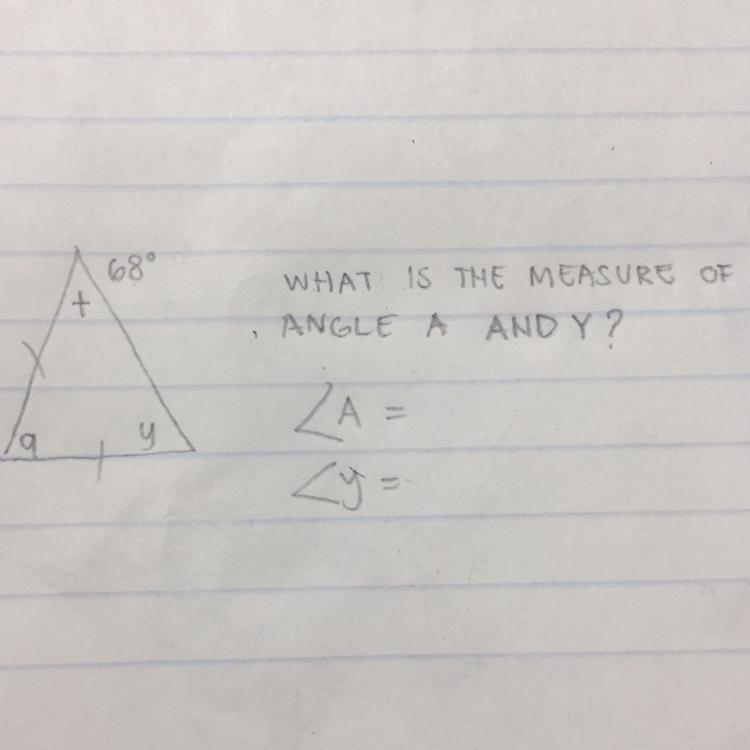 68°
t
a y
WHAT IS THE MEASURE OF
ANGLE A AND Y?
∠A =
∠y =